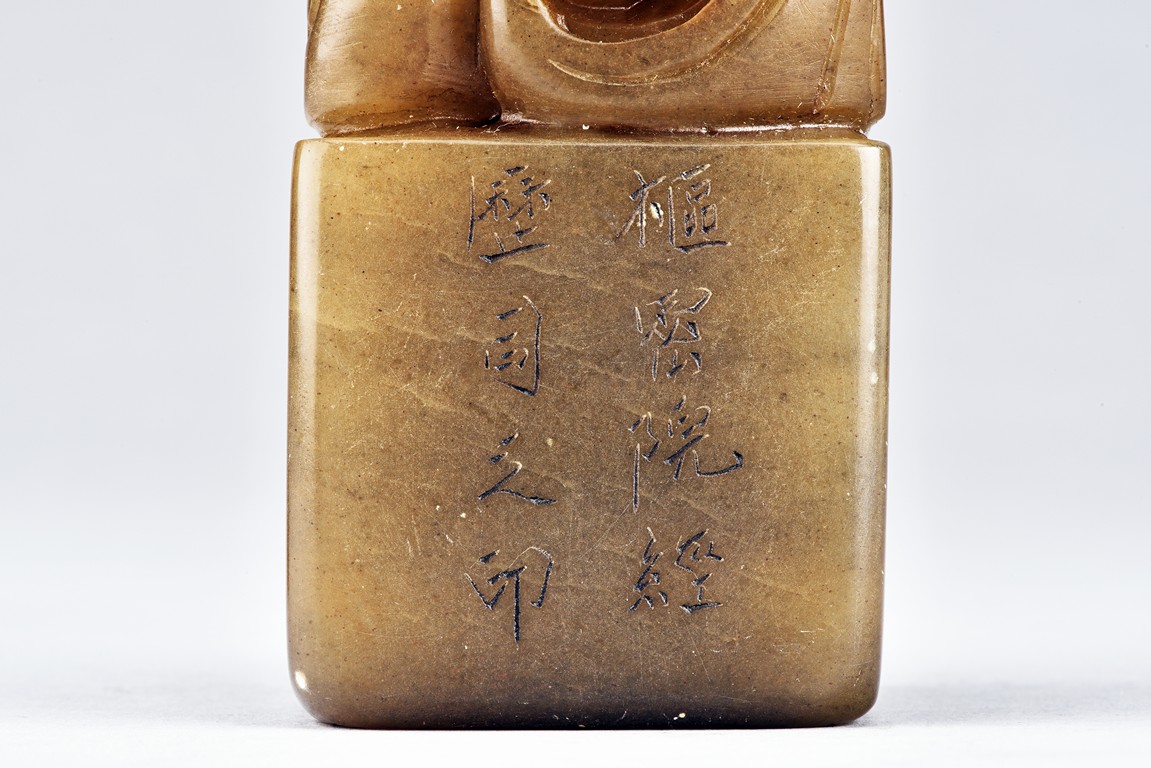 樞密院經
歷司之印